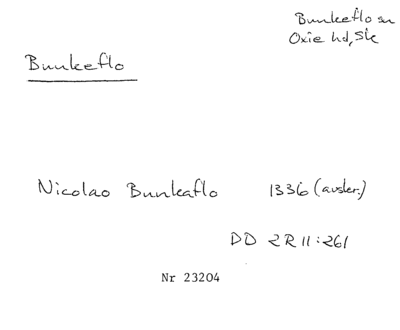 Bunkeflo sn
Oxie hd, Sk
Bunkeflo
Nicolao Bunkaflo 1336 (avskr.)
DD 2 R 11:261
Nr 23204